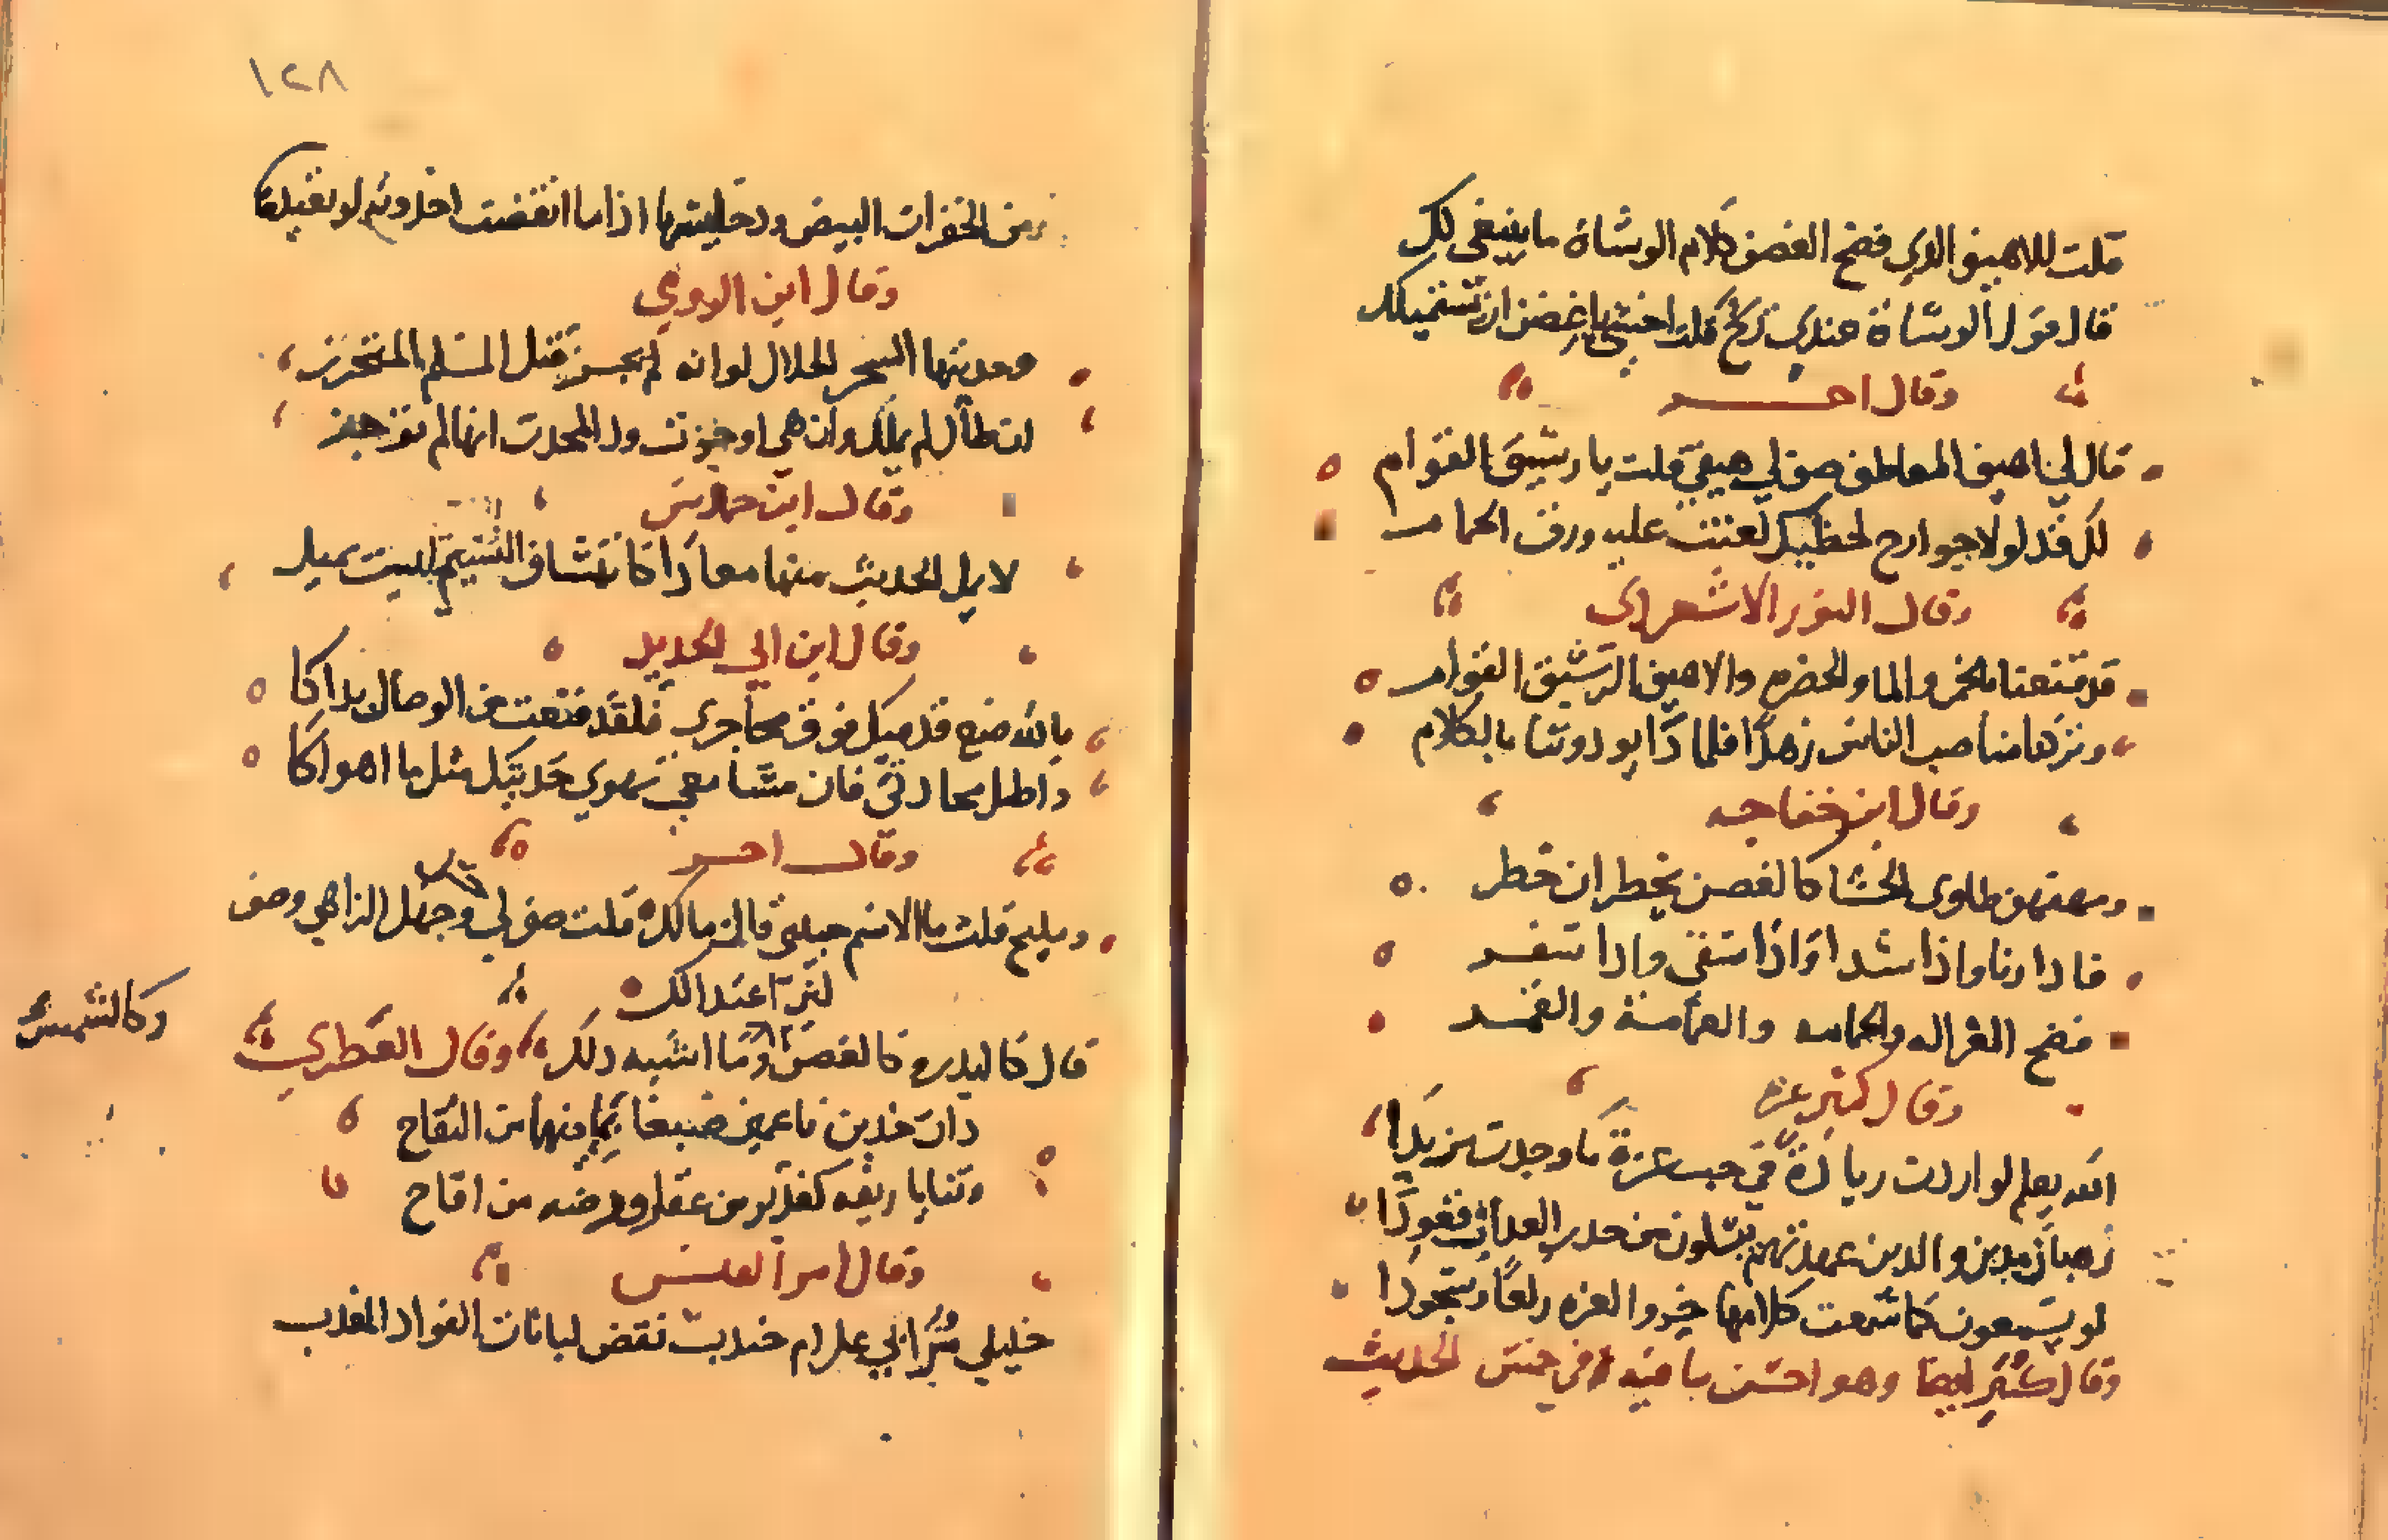 قلت للاهيف الذي فضح الغصن كلام الوشاة ما ينبغي لك
قال قول الوشاة عندي ريح قلت اخشى يا غصن ان تستميلك
وقال اخر
قال لي اهيف المعاطف صف لي هيفي قلت يا رشيق القوام
لك قد لولا جوارح لحظيك لغنت عليه ورق الحمام
وقال النور الاشعراي
قد قنعنا بالخمر والما والخضره والاهيف الرشيق القوام
ونزهنا مناصب الناس زهدا فلماذا يودوننا بالكلام
وقال ابن خفاجه
ومهفهف طاوى الحشا كالغصن يخطر ان خطر
فاذا رنا واذا شدا واذا سقى واذا سفر
فضح الغزاله والحمامه والغمامة والقمر
وقال كثير عزه
الله يعلم لو اردت زيادة في حب عزة ما وجدت مزيدا
رهبان مدين والذين عهدتهم يبكون من حذر العذاب قعودا
لو يسمعون كما سمعت كلامها خروا لعزه ركعا وسجودا
وقال كثير ايضا وهو احسن ما فيه في حسن الحديث
١٢٨
من الخفرات البيض ود جليسها اذا ما انقضت احدوثه لو تعيدها
وقال ابن الرومي
وحديثها السحر الحلال لو انه لم يجن قتل المسلم المتحرز
ان طال لم يملل وان هي اوجزت ود المحدث انها لم توجز
وقال ابن حمديس
لا يمل الحديث منها معادا كانتشاق النسيم ليس يميل
وقال ابن ابي الحديد
بالله ضع قدميك فوق محاجري فلقد قنعت من الوصال بذاكا
واطل محادثتي فان مسامعي تهوى حديثك مثل ما اهواكا
وقال اخر
ومليح قلت ما الاسم حبيبي قال مالك قلت صف لي وجهك الزاهي وصف
لنرا اعتدالك
قال كالبدر وكالغصن وما اشبه ذلك وقال القطربي
وكالشمس
ذات خدين ناعمين ضنينين بما فيهما من التفاح
وثنايا وريقه كغدير من عقار وروضه من اقاح
وقال امرا القيس
خليلي مرا بي على ام جندب نقض لبانات الفواد المعذب